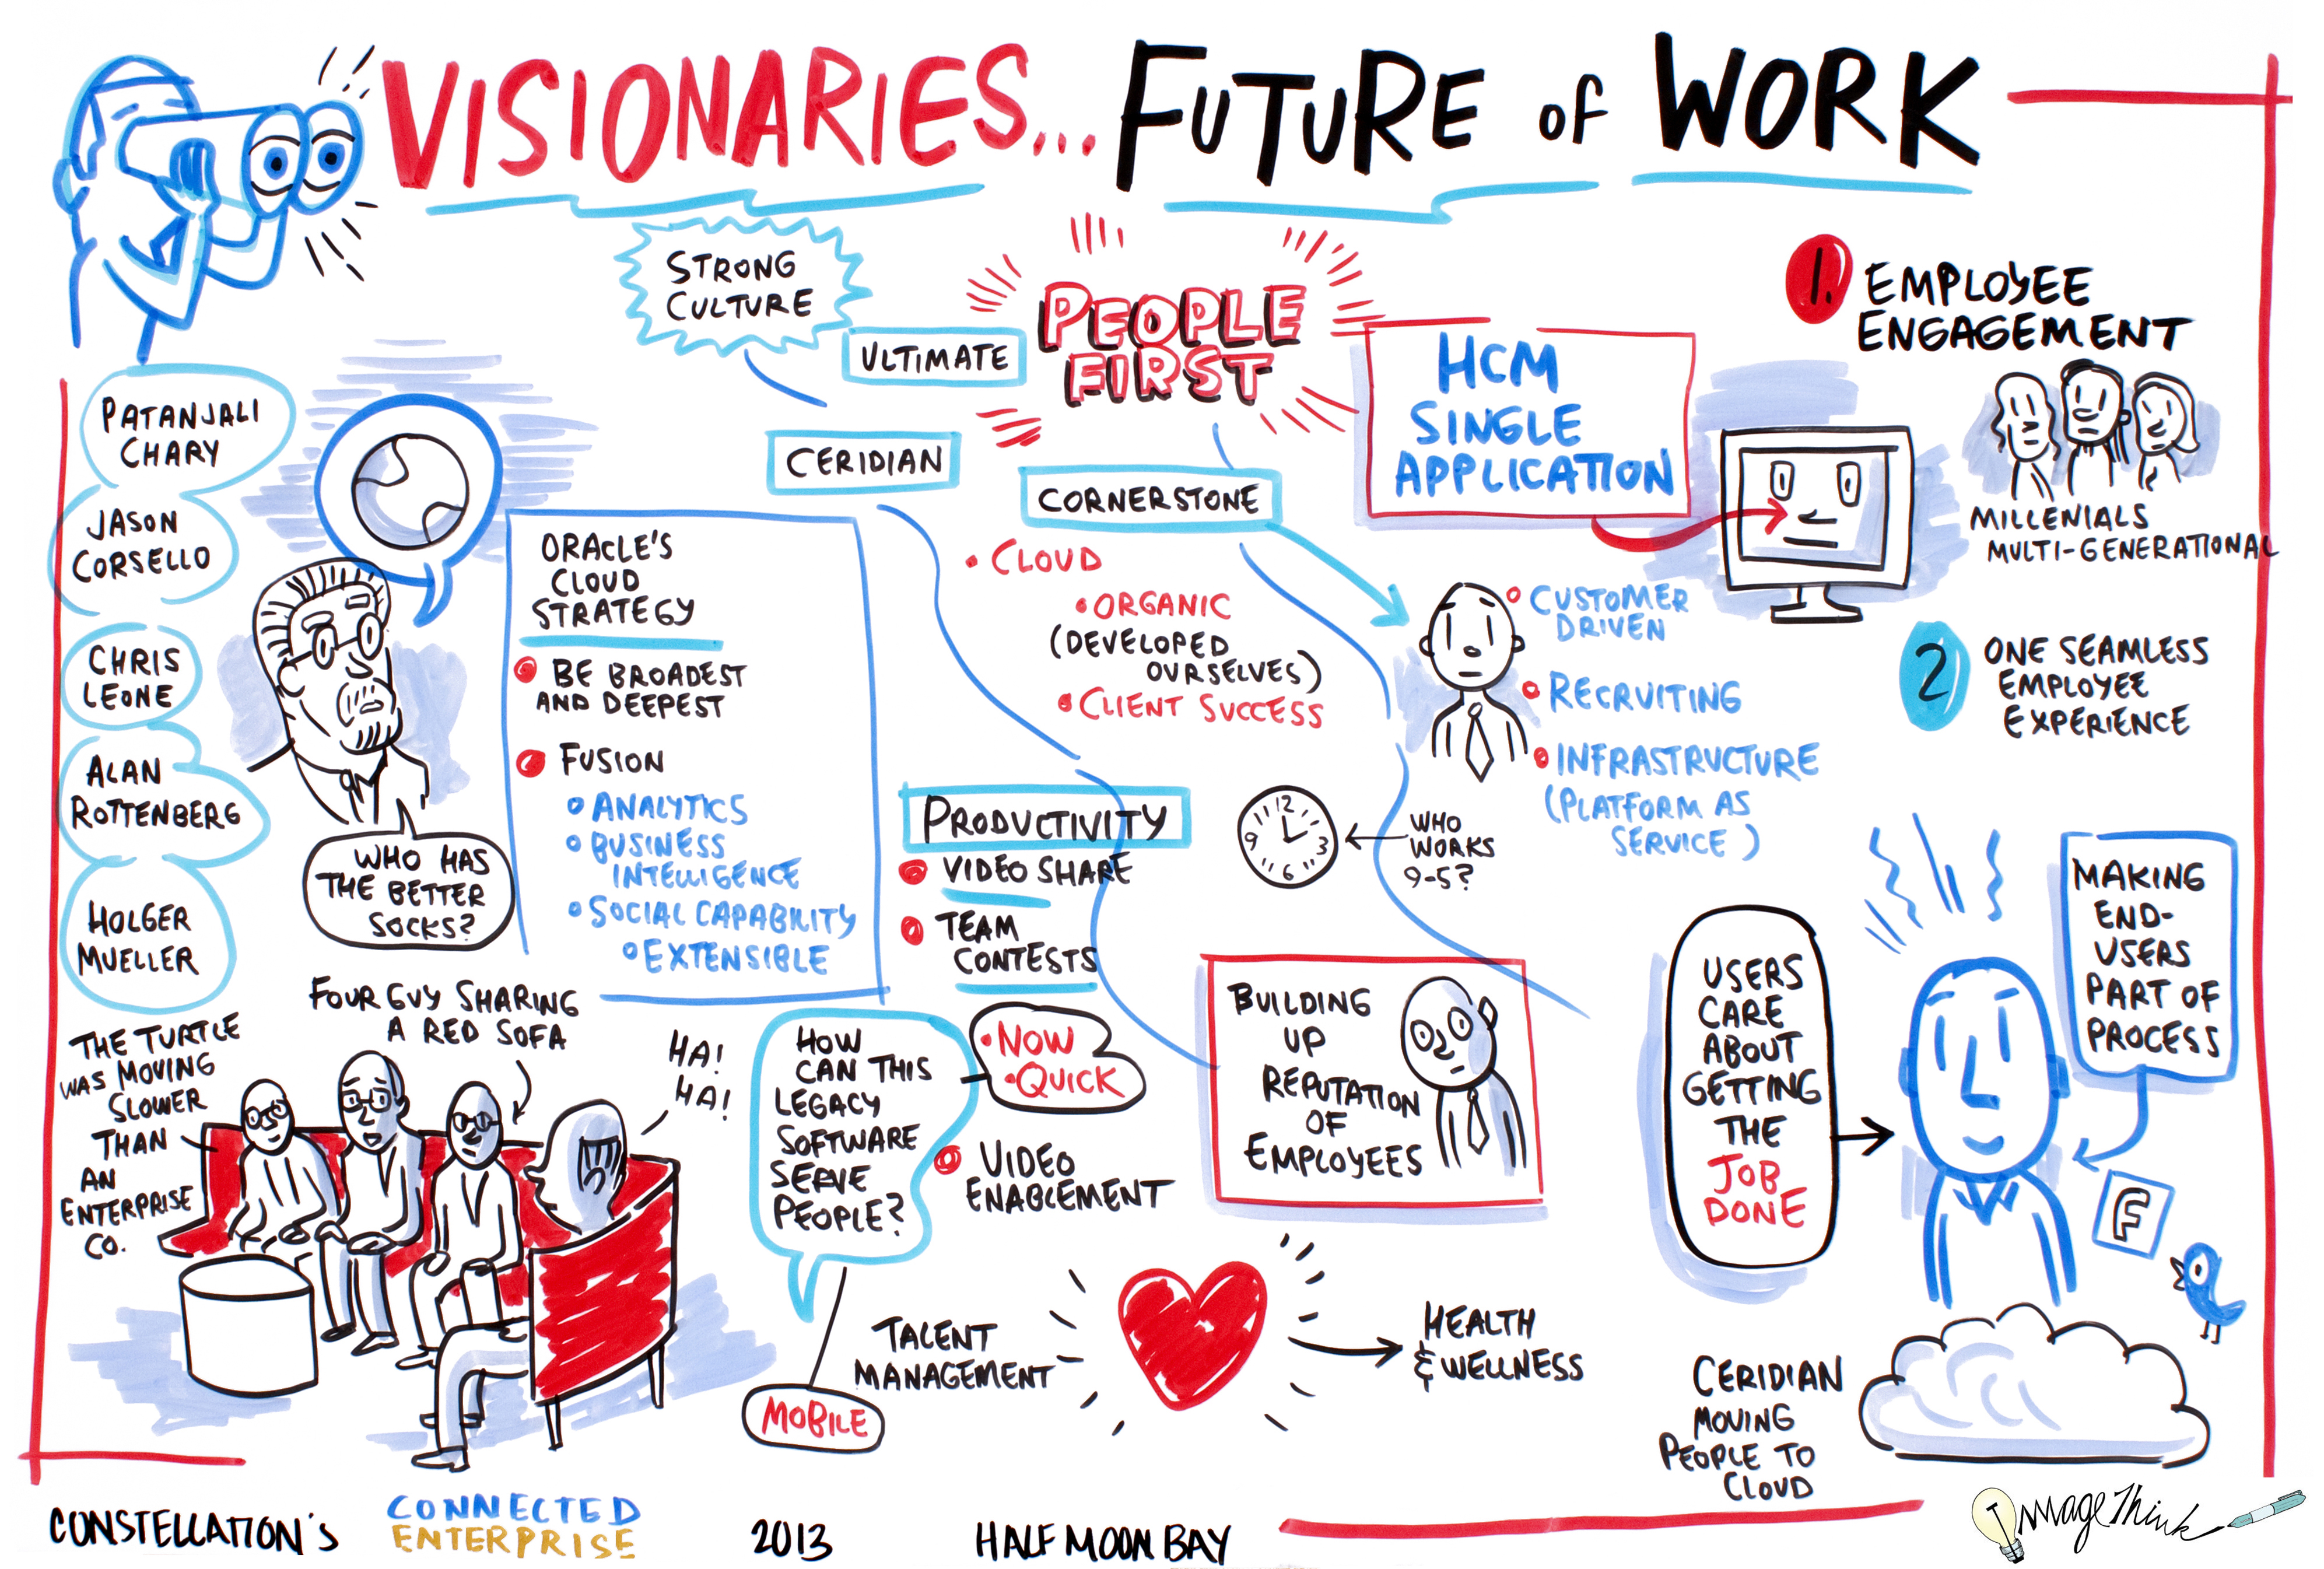 VISIONARIES... FUTURE OF WORK
STRONG
CULTURE
ULTIMATE
PEOPLE
FIRST
CERIDIAN
CORNERSTONE
HCM
SINGLE
APPLICATION
1. EMPLOYEE
ENGAGEMENT
MILLENIALS
MULTI-GENERATIONAL
2 ONE SEAMLESS
EMPLOYEE
EXPERIENCE
PATANJALI
CHARY
JASON
CORSELLO
CHRIS
LEONE
ALAN
ROTTENBERG
HOLGER
MUELLER
WHO HAS
THE BETTER
SOCKS?
ORACLE'S
CLOUD
STRATEGY
BE BROADEST
AND DEEPEST
FUSION
ANALYTICS
BUSINESS
INTELLIGENCE
SOCIAL CAPABILITY
EXTENSIBLE
• CLOUD
• ORGANIC
(DEVELOPED
OURSELVES)
• CLIENT SUCCESS
CUSTOMER
DRIVEN
RECRUITING
INFRASTRUCTURE
(PLATFORM AS
SERVICE)
PRODUCTIVITY
VIDEO SHARE
TEAM
CONTESTS
12
3
6
9
WHO
WORKS
9-5?
• NOW
• QUICK
VIDEO
ENABLEMENT
HOW
CAN THIS
LEGACY
SOFTWARE
SERVE
PEOPLE?
MOBILE
THE TURTLE
WAS MOVING
SLOWER
THAN
AN
ENTERPRISE
CO.
FOUR GUY SHARING
A RED SOFA
HA!
HA!
BUILDING
UP
REPUTATION
OF
EMPLOYEES
USERS
CARE
ABOUT
GETTING
THE
JOB
DONE
MAKING
END-
USERS
PART OF
PROCESS
F
TALENT
MANAGEMENT
HEALTH
& WELLNESS
CERIDIAN
MOVING
PEOPLE TO
CLOUD
CONSTELLATION'S
CONNECTED
ENTERPRISE
2013
HALF MOON BAY
ImageThink